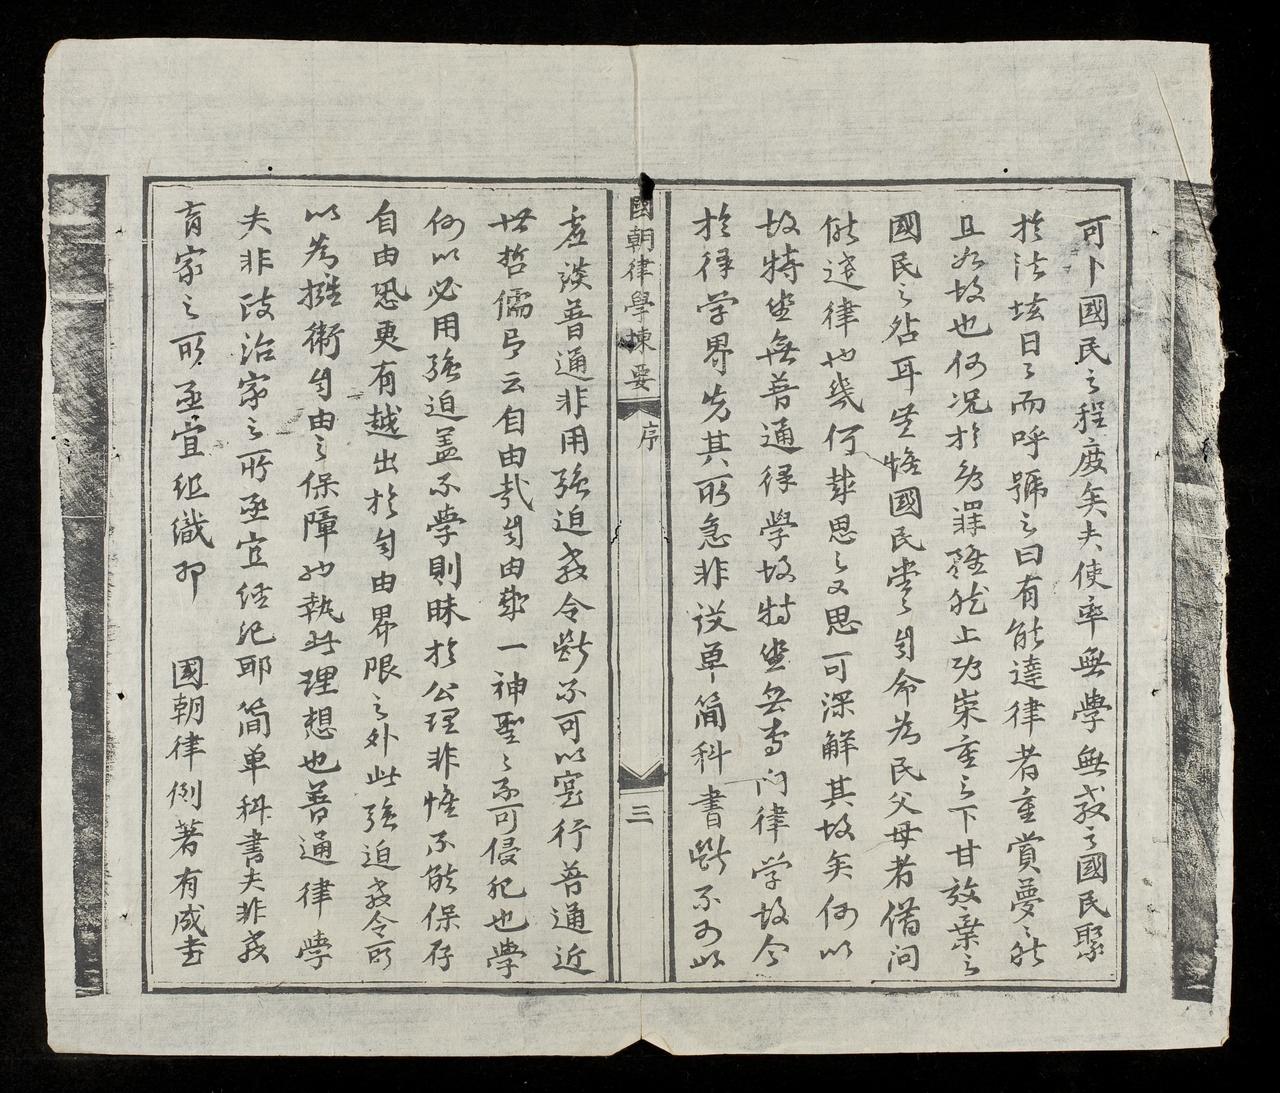 可卜國民之程度矣夫使率無學無教之國民聚
於法場日日而呼號之曰有能達律者重賞夢夢然
且如故也何況於
國民之 耳 國民 自命為民父母者借問
能達律也幾何 思之又思可深解其故矣何以
故特坐無普通律學故特坐無專门律学故今
於律学界先其所急非設單簡科書斷不可以
國朝律學揀要
序
三
虛談普通非用强迫教令斷不可以寔行普通近
世哲儒有云自由哉自由哉一神聖之不可侵犯也學
何以必用强迫盖不學則昧於公理非惟不能保存
自由恐更有越出於自由界限之外此强迫教令所
以為擁衛自由之保障也執此理想也普通律學
夫非政治家之所亟宜經紀耶簡单科書夫非教
育家之所亟宜組織耶　國朝律例著有成书